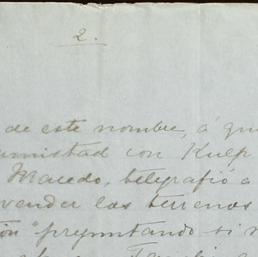 2.
de este nombre, á
amistad con Kulp
Macedo, telegrafió a
vender los terrenos
preguntando si